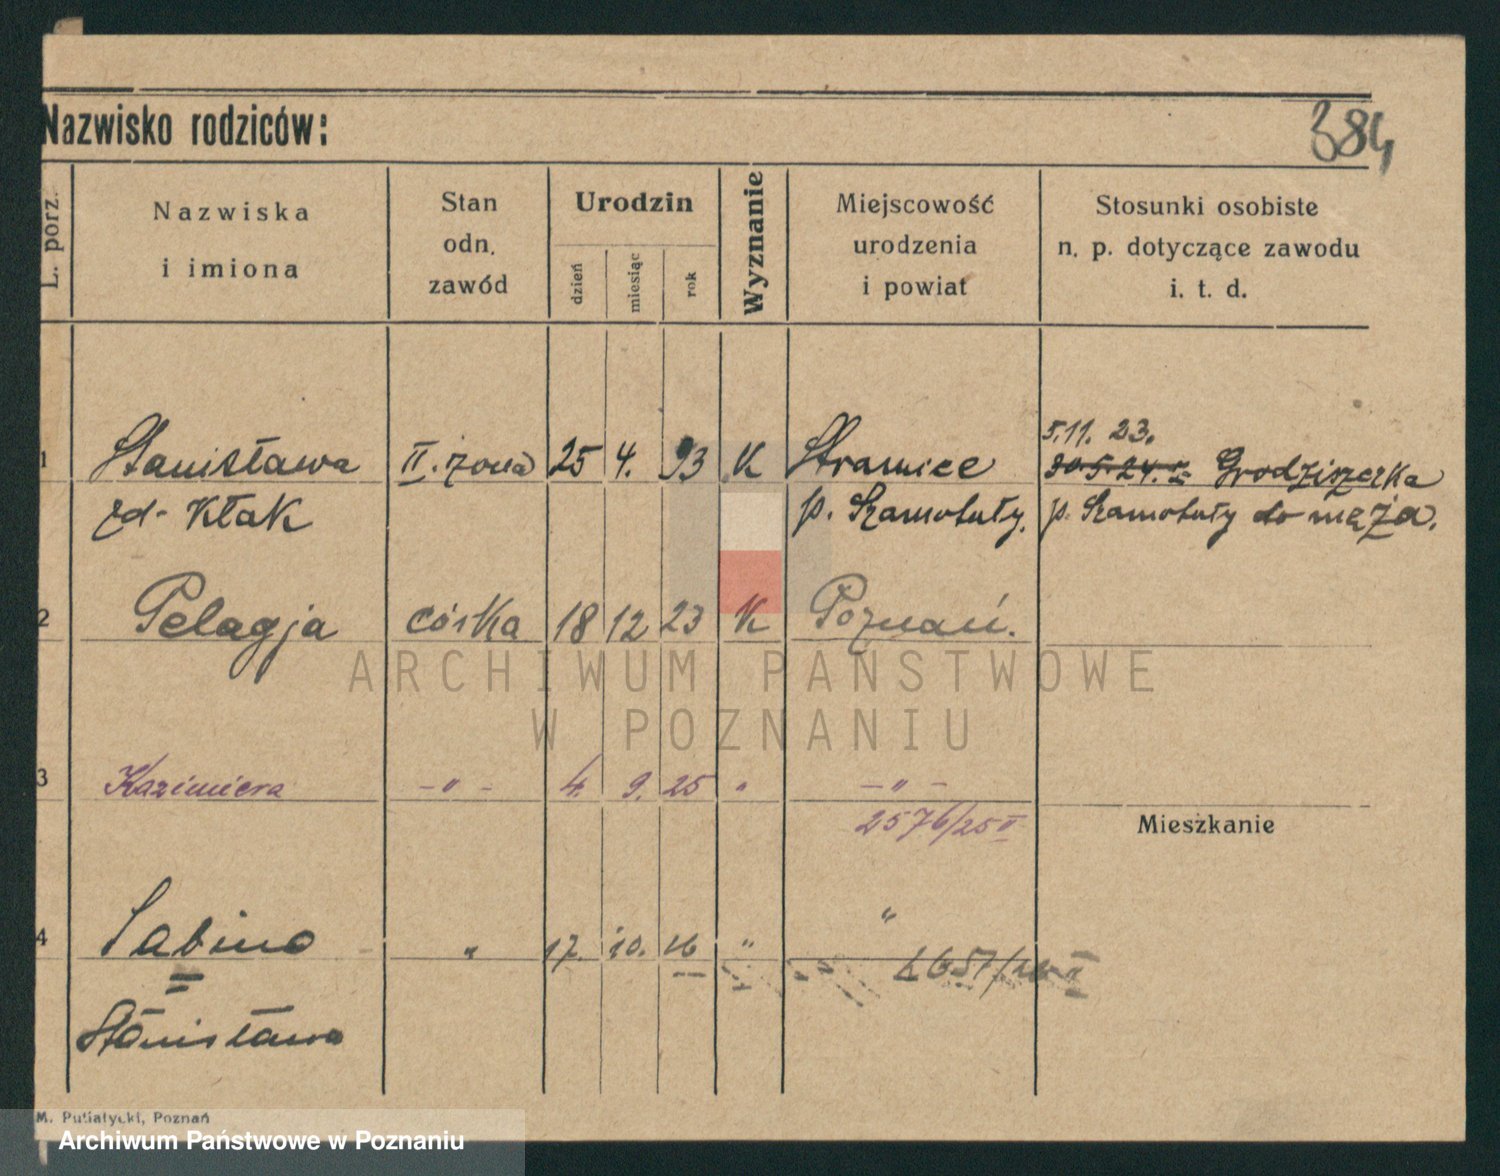 Nazwisko rodziców:
384
L. porz.
Nazwiska
i imiona
Stan
odn.
zawód
Urodzin
dzień
miesiąc
rok
Wyznanie
Miejscowość
urodzenia
i powiat
Stosunki osobiste
n. p. dotyczące zawodu
i. t. d.
5.11. 23.
1 Stanisława II. żona 25 4. 93 K 30.5.24. Grodziszczka
zd. Kłak p. Szamotuły. p. Szamotuły do męża.
2 Pelagja córka 18 12 23 K Poznań.
ARCHIWUM PAŃSTWOWE
W POZNANIU
3 Kazimiera -"- 4. 9. 25 " -"-
2576/25 II
Mieszkanie
"
4 Sabina " 17. 10. 26 "
=
Stanisława
M. Putiatycki, Poznań
Archiwum Państwowe w Poznaniu